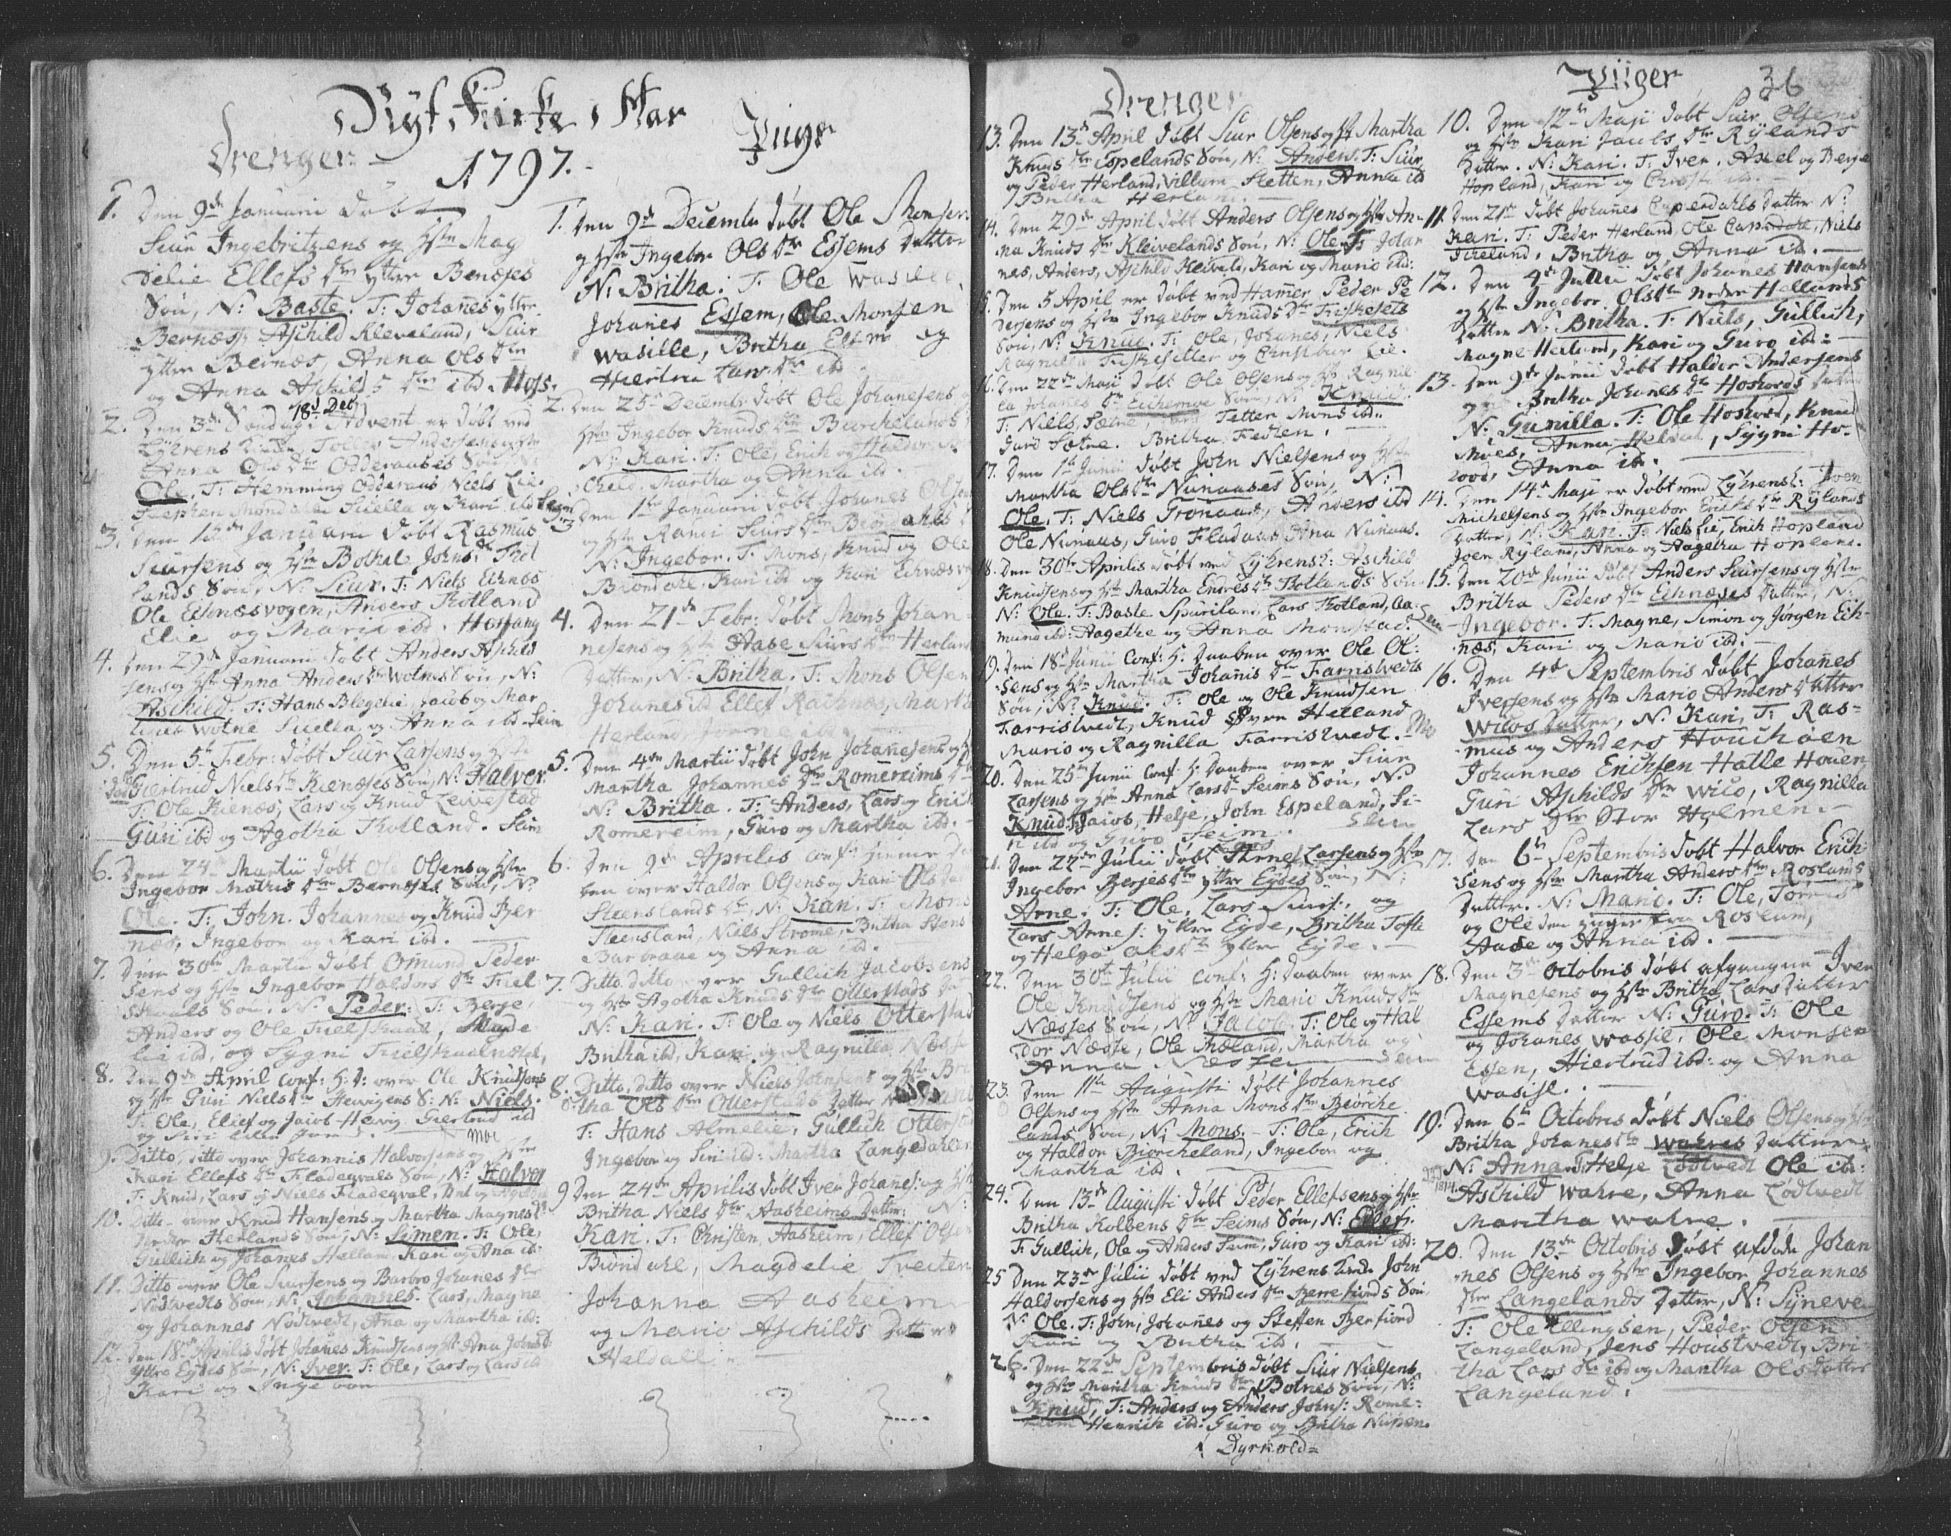 Nyt Kirke Aar
1797.
Drenger
1. Den 9de Januarii Døbt
Siur Ingebritzens og Hstr Mag
delie Ellefs Dtr ytter Bernæses
Søn, N: Baste. T: Johanes ytter
Bernæs, Aschild Kleveland, Siur
ytter Bernæs, Anna Ols Dtr
og Anna Aschilds Dtr ibd.
2. Den 3de Søndag i Advent er døbt ved
18d Det
Anna Ols Dtr Odderaases Søn N:
Ole. T: Hemming Odderaas, Niels Lie
og Kari ibd.
3. Den Januarii døbt Rasmus
Siursens og Hstr Bothel Johns Dtr
lands Søn, N: Siur. T: Niels Echnæs
Ole Echnæsvogen, Anders Kotland
Elie og Mari ibd.
4. Den 29de Januarii døbt Anders Aschild
sens og Hstr Anna Anders Dtr Wolnes Søn, N:
Aschild. T: Hans Blegelie, Jacob og Mar
og Anna ibd. Seim
5. Den 5te Febr: døbt Siur Larsens og Hstr
Giertrud Niels Dtr Kienæses Søn, N: Halvor
T: Ole Kienæs, Lars og Knud Leirestad
Guri ibd og Agotha Kotland. Seim
6. Den 24de Martii døbt Ole Olsens og Hstr
Ingebor Mathis Dtr Bernæses Søn, N:
Ole. T: John, Johannes og Knud Ber
næs, Ingebor og Kari ibd.
7. Den 30te Martii døbt Omund Peder
sens og Hstr Ingebor Haldors Dtr Fiel
skaals Søn, N: Peder. T: Berge,
Anders og Ole Fielskaal, Magde
lia ibd, og Sygni Fielskaalnæset,
8. Den 9de April conf: H: D: over Ole Knudsens
og Hstr Guri Niels Dtr Hevigens S: N: Niels.
T: Ole, Ellef og Jacob Hevig. Giertrud ibd
9. Ditto, ditto over Johannis Halvorsens og Hstr
Kari Ellefs Dtr Fladeqvals Søn, N: Halvor
T: Knud, Lars og Niels Fladeqval, og Agotha
10. Ditto over Knud Hansens og Martha Magnes Dtr
Nedre Hellands Søn, N: Simen. T: Ole,
Gullich og Johanes Helland. Kari og Ana ibd:
11. Ditto over Ole Siursens og Barbro Johanes Dtr
Nødtvedts Søn, N: Johannes. Lars, Magne
og Johannes Nødtvedt, Ana og Martha ibd:
12. Den 18de Aprilis døbt Johanes Knudsens og Hstr Ana Johns Dtr
Yttre Eydes Søn, N: Iver. T: Ole, Lars og Lars ibd
Kari og Ingebor
Piiger
1. Den 9de Decembr døbt Ole Monsens
og Hstr Ingebor Ols Dtr Essems Datter
N: Britha. T: Ole Wasille
Johanes Essem, Ole Monsen
Wasille, Britha Essem og
Hiertru Lars Dtr ibd.
2. Den 25de Decembr døbt Ole Johanesens og
Hstr Ingebor Knuds Dtr Biørchelands D
N: Kari. T: Ole, Erich og Haldor Biør
cheld. Martha og Anna ibd.
3. Den 1te Januarii døbt Johanes Olsens
og Hstr Ranei Siurs Dtr Brøndahls D
N: Ingebor. T: Mons, Knud og Ole
Brøndahl. Kari ibd og Kari Echnæsv
4. Den 21de Febr: døbt Mons Johan
nesens og Hstr Aase Siurs Dtr Herlands
Datter, N: Britha. T: Mons Olsen
Johanes og Ellef Raknæs, Martha
Herland
5. Den 4de Martii døbt John Johanesens og H
Martha Johannes Dtr Romereims D
N: Britha. T: Anders, Lars og Erich
Romereim, Guro og Martha ibd.
6. Den 9de Aprilis conf: hieme Da
ben over Haldor Olsens og Kari Ols D
Steenslands Dtr, N: Kari. T: Mons
Steensland, Niels Strømme, Britha Stens
Barbraae og Anna ibd.
7. Ditto ditto over Gullich Jacobsens
og Hstr Agotha Knuds Dtr Otterstads Da
N: Kari. T: Ole og Niels Otterstad
Britha ibd, Kari og Ragnilla Næsse
8. Ditto, ditto over Niels Johnsens og Hstr Bri
tha Ols Dtr Otterstads Datter N:
T: Hans Almelie, Gullich Otterst
Ingebor og Siri ibd: Martha Langedahlen
9 Den 24de Aprilis døbt Iver Johanes: og Hstr
Britha Niels Dtr Aasheims Datter, N:
Kari. T: Christen Aasheim, Ellef Olsen
Brøndahl, Magdelie Tveiten
Johanna Aasheim
og Mario Aschilds Datter
Heldall.
Drenger
13. Den 13de April døbt Siur Olsens og Hstr Martha
Knuds Dtr Espelands Søn, N: Anders. T: Siur
og Peder Herland, Villum Sletten, Anna ibd
Britha Herland.
14. Den 29de April døbt Anders Olsens og Hstr An-
na Knuds Dtr Kleivelands Søn, N: Ole. T: Johan
nes, Anders, Aschild Kleiveld, Kari og Mario ibd:
5. Den 5 April er døbt ved Hamer Peder Pe
dersens og Hstr Ingebor Knuds Dtr Fiskesets
Søn, N: Knud. T: Ole, Johanes, Niels
Ragnilla Fiskesetter og Lie.
Den 22de Maji døbt Ole Olsens og Hstr Ragnil-
la Johanes Dtr Eichemoe Søn, N: Knud.
T: Niels Sætre, Lars Tetter Mons ibd:
Guro Sætre. Britha Fedten.
17. Den 1te Junii døbt John Nielsens og Hstr
Martha Ols Dtr Nunaases Søn, N:
Ole. T: Niels Tronaas, Anders ibd
Ole Nunaas, Guro Fladaas Ana Nunaas.
18. Den 30te Aprilis døbt ved Lyhrens K: Aschild
Knudsens og Hstr Martha Endres Dtr Kotlands Søn
N: Ole. T: Baste Spurrland, Lars Kotland, Aa
mund ibd: Aagethe og Anna Monstad.
19. Den 18de Junii conf: H: Daaben over Ole Ol-
sens og Hstr Martha Johanis Dtr Farristvedts
Søn, N: Knud. T: Ole og Ole Knudsen
Farristvedt, Knud Øvre Helland
Mario og Ragnilla Farristvedt.
20. Den 25de Junii conf: H: Daaben over Siur
Larsens og Hstr Anna Lars Dtr Seims Søn, N:
Knud. T: Jacob, Helje, John Espeland, Si-
ri ibd og Guro Seim. Seim
21. Den 22de Julii døbt Arne Larsens og Hstr
Ingebor Berjes Dtr yttre Eydes Søn, N:
Arne. T: Ole, Lars Siurs: og
Lars Annes: yttre Eyde, Britha Tofte
og Helga Ols Dtr yttre Eyde.
22. Den 30te Julii conf: H: Daaben over
Ole Knudsens og Hstr Mario Knuds Dtr
Næsses Søn, N: Jacob. T: Ole og Hal
dor Næsse, Ole Kæland, Martha og
Anna Næsse Seim
23. Den 11te Augusti døbt Johannes
Olsens og Hstr Anna Mons Dtr Biørche
lands Søn, N: Mons. T: Ole, Erich
og Haldor Biørcheland, Ingebor og
Martha ibd.
24. Den 13de Augusti døbt Peder Ellefsens og Hstr
Britha Kolbens Dtr Seims Søn, N: Ellef.
T: Gullich, Ole og Anders Seim, Guro og Kari ibd:
25 Den 23de Julii døbt ved Lyhrens Kirke John
Haldorsens og Hstr Eli Anders Dtr Berrefiords Søn
N: Ole. T: John, Johanes og Steffen Berfiord
Kari og Britha ibd.
26. Den 22de Septembris døbt Siur Nielsens
og Hstr Martha Knuds Dtr Botnes Søn, N:
Knud, T: Anders og Anders Johns: Rome-
reim Henrich ibd: Guro og Britha Nissen.
Dyrkold
Piiger
36
10. Den 12te Maji døbt Siur Olsens
og Hstr Kari Jacobs Dtr Rylands
Datter. N: Kari. T: Iver, Axel og Berge
Hopland, Kari og Christi ibd.
11. Den 21de døbt Johanes Caperdahls Datter N:
Kari. T: Peder Herland, Ole Caperdahl, Niels
Fieland, Britha og Anna ibd.
12. Den 4de Julii døbt Johanes Hansens
og Hstr Ingebor Ols Dtr nedre Hellands
Datter N: Britha. T: Niels, Gullich,
Magne Helland, Kari og Guro ibd.
13. Den 9de Junii døbt Haldor Andersens
og Britha Johanes Dtr Hoskords Datter
N: Gunilla. T: Ole Hoskord, Knud
Moes, Anna Helvid, Sygni Ho-
Anna ibd.
14. Den 14de Maji er døbt ved Lyhrens K: Joen
Michelsens og Hstr Ingebor Erichs Dtr Rylands
Datter, N: Kari. T: Niels Lie, Erich Hopland
Joen Ryland, Anna og Aagetha Hopland.
15. Den 20de Junii døbt Anders Siursens og Hstr
Britha Peders Dtr Echnæses Datter, N:
Ingebor. T: Magne, Simon og Jørgen Ech-
næs, Kari og Mario ibd.
16. Den 4de Septembris døbt Johanes
Iversens og Hstr Mario Anders Datter
Wiigs Datter, N: Kari. T: Ras-
mus og Anders Houchaen
Johannes Erichsen Halle Houen,
Guri Aschilds Dtr Wiig, Ragnilla
Lars Dtr Stor Holmen.
17. Den 6te Septembris døbt Halvor Erich-
sens og Hstr Martha Anders Dtr Roslands
Datter. N: Mario. T: Ole, Tormo
og Ole den yngre fra Roslan,
Aase og Anna ibd.
18. Den 3de Octobris døbt afgangne Iver
Magnesens og Hstr Britha Lars Datter
Essems Datter N: Guro. T: Ole
og Johanes Wassil, Ole Monsen
Essen, Hiertrud ibd: og Anna
Wasisl.
19. Den 6te Octobris døbt Niels Olsens og Hstr
Britha Johanes Dtr Wahres Datter
N: Anna. T: Helje Lødtvedt Ole ibd:
Aschild Wahre, Anna Lødtvedt
Martha Walne.
20. Den 13de Octobris døbt afdøde Johan
nes Olsens og Hstr Ingebor Johannes
Dtr Langelands Datter, N: Syneve
T: Ole Ellingsen, Peder Olsen
Langeland, Jens Houstvedt, Bri
tha Lars Dtr ibd og Martha Ols Datter
Langeland.